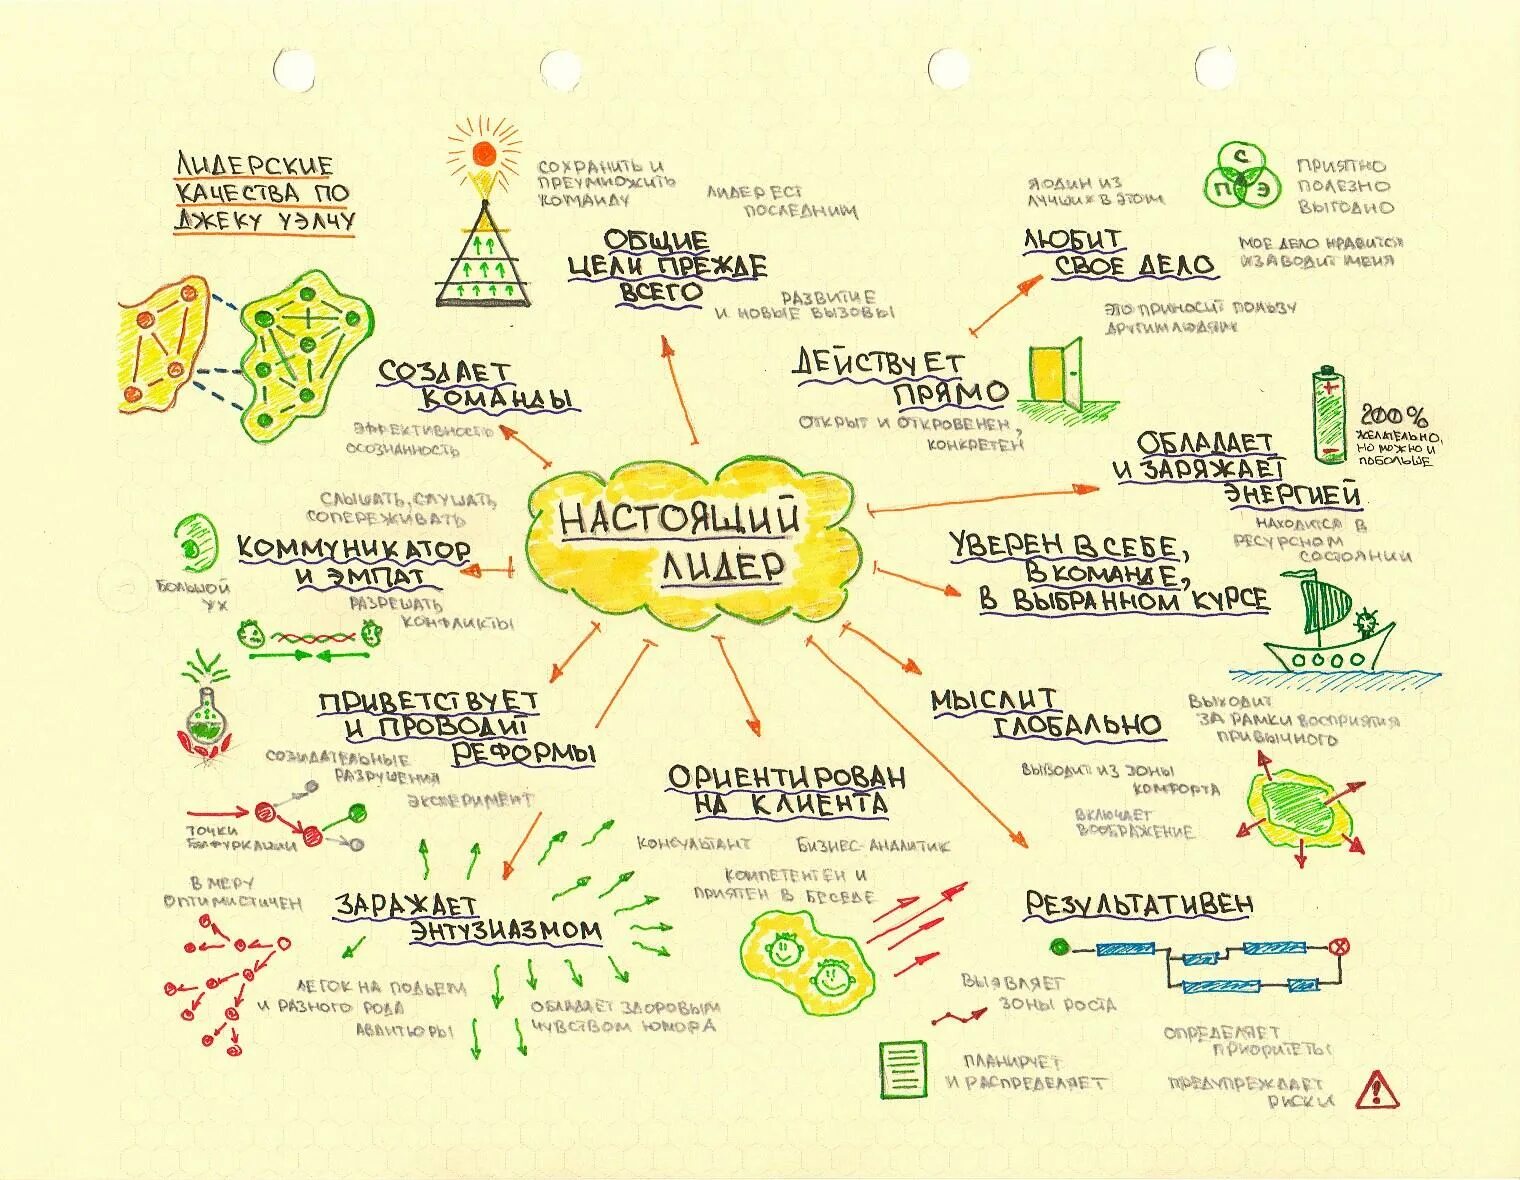 ЛИДЕРСКИЕ
КАЧЕСТВА ПО
ДЖЕКУ УЭЛЧУ
СОХРАНИТЬ И
ПРЕУМНОЖИТЬ
КОМАНДУ
ЛИДЕР ЕСТ
ПОСЛЕДНИМ
ОБЩИЕ
ЦЕЛИ ПРЕЖДЕ
ВСЕГО
РАЗВИТИЕ
И НОВЫЕ ВЫЗОВЫ
Я ОДИН ИЗ
ЛУЧШИХ В ЭТОМ
С
П Э
ПРИЯТНО
ПОЛЕЗНО
ВЫГОДНО
ЛЮБИТ
СВОЕ ДЕЛО
МОЕ ДЕЛО НРАВИТСЯ
И ЗАВОДИТ МЕНЯ
ЭТО ПРИНОСИТ ПОЛЬЗУ
ДРУГИМ ЛЮДЯМ
СОЗДАЕТ
КОМАНДЫ
ЭФФЕКТИВНОСТЬ
ОСОЗНАННОСТЬ
ДЕЙСТВУЕТ
ПРЯМО
ОТКРЫТ И ОТКРОВЕНЕН,
КОНКРЕТЕН
+
-
200%
ЖЕЛАТЕЛЬНО,
НО МОЖНО И
ПОБОЛЬШЕ
ОБЛАДАЕТ
И ЗАРЯЖАЕТ
ЭНЕРГИЕЙ
НАХОДИТСЯ В
РЕСУРСНОМ
СОСТОЯНИИ
СЛЫШАТЬ, СЛУШАТЬ,
СОПЕРЕЖИВАТЬ
КОММУНИКАТОР
И ЭМПАТ
БОЛЬШОЙ
УХ
РАЗРЕШАТЬ
КОНФЛИКТЫ
НАСТОЯЩИЙ
ЛИДЕР
УВЕРЕН В СЕБЕ,
В КОМАНДЕ,
В ВЫБРАННОМ КУРСЕ
ПРИВЕТСТВУЕТ
И ПРОВОДИТ
РЕФОРМЫ
СОЗИДАТЕЛЬНЫЕ
РАЗРУШЕНИЯ
ЭКСПЕРИМЕНТ
ТОЧКИ
БИФУРКАЦИИ
МЫСЛИТ
ГЛОБАЛЬНО
ВЫХОДИТ
ЗА РАМКИ ВОСПРИЯТИЯ
ПРИВЫЧНОГО
ВЫВОДИТ ИЗ ЗОНЫ
КОМФОРТА
ВКЛЮЧАЕТ
ВООБРАЖЕНИЕ
ОРИЕНТИРОВАН
НА КЛИЕНТА
КОНСУЛЬТАНТ
БИЗНЕС-АНАЛИТИК
КОМПЕТЕНТЕН И
ПРИЯТЕН В БЕСЕДЕ
В МЕРУ
ОПТИМИСТИЧЕН
ЗАРАЖАЕТ
ЭНТУЗИАЗМОМ
ЛЕГОК НА ПОДЪЕМ
И РАЗНОГО РОДА
АВАНТЮРЫ
ОБЛАДАЕТ ЗДОРОВЫМ
ЧУВСТВОМ ЮМОРА
РЕЗУЛЬТАТИВЕН
ВЫЯВЛЯЕТ
ЗОНЫ РОСТА
ПЛАНИРУЕТ
И РАСПРЕДЕЛЯЕТ
ОПРЕДЕЛЯЕТ
ПРИОРИТЕТЫ
ПРЕДУПРЕЖДАЕТ
РИСКИ
!